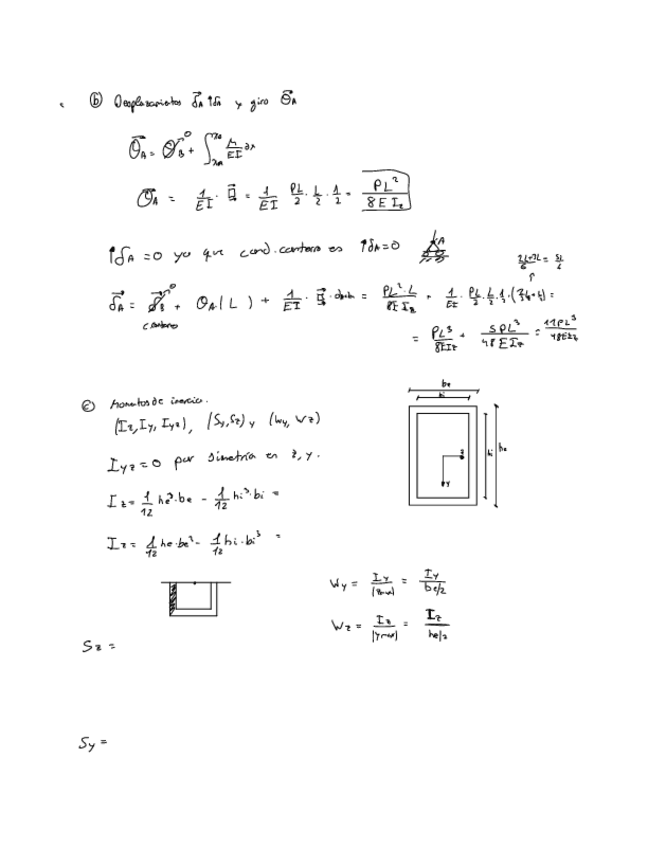 ⓑ Desplazamientos δ⃗A ↑δA y giro θ⃗A
θ⃗A = θ⃗B⁰ + ∫ M/EI dx
θ⃗A = 1/EI · = 1/EI PL/2 · L/2 · 1/2 = PL²/8EIz
↑δA = 0 ya que cond. contorno es ↑δA = 0 A
2L+3L/6 = 5L/6
δ⃗A = δ⃗B⁰ + θA(L) + 1/EI · = PL²·L/8EIz + 1/EI · PL/2 · L/2 · 1/2 · =
contorno
= PL³/8EIz + 5PL³/48EIz = 11PL³/48EIz
ⓒ Momentos de inercia.
(Iz, Iy, Iyz), (Sy, Sz) y (Wy, Wz)
Iyz = 0 por simetría en z, y.
Iz = 1/12 he³·be - 1/12 hi³·bi =
Iz = 1/12 he·be³ - 1/12 hi·bi³ =
be
bi
hi
he
z
y
Wy = Iy/|zmax| = Iy/be/2
Wz = Iz/|ymax| = Iz/he/2
Sz =
Sy =